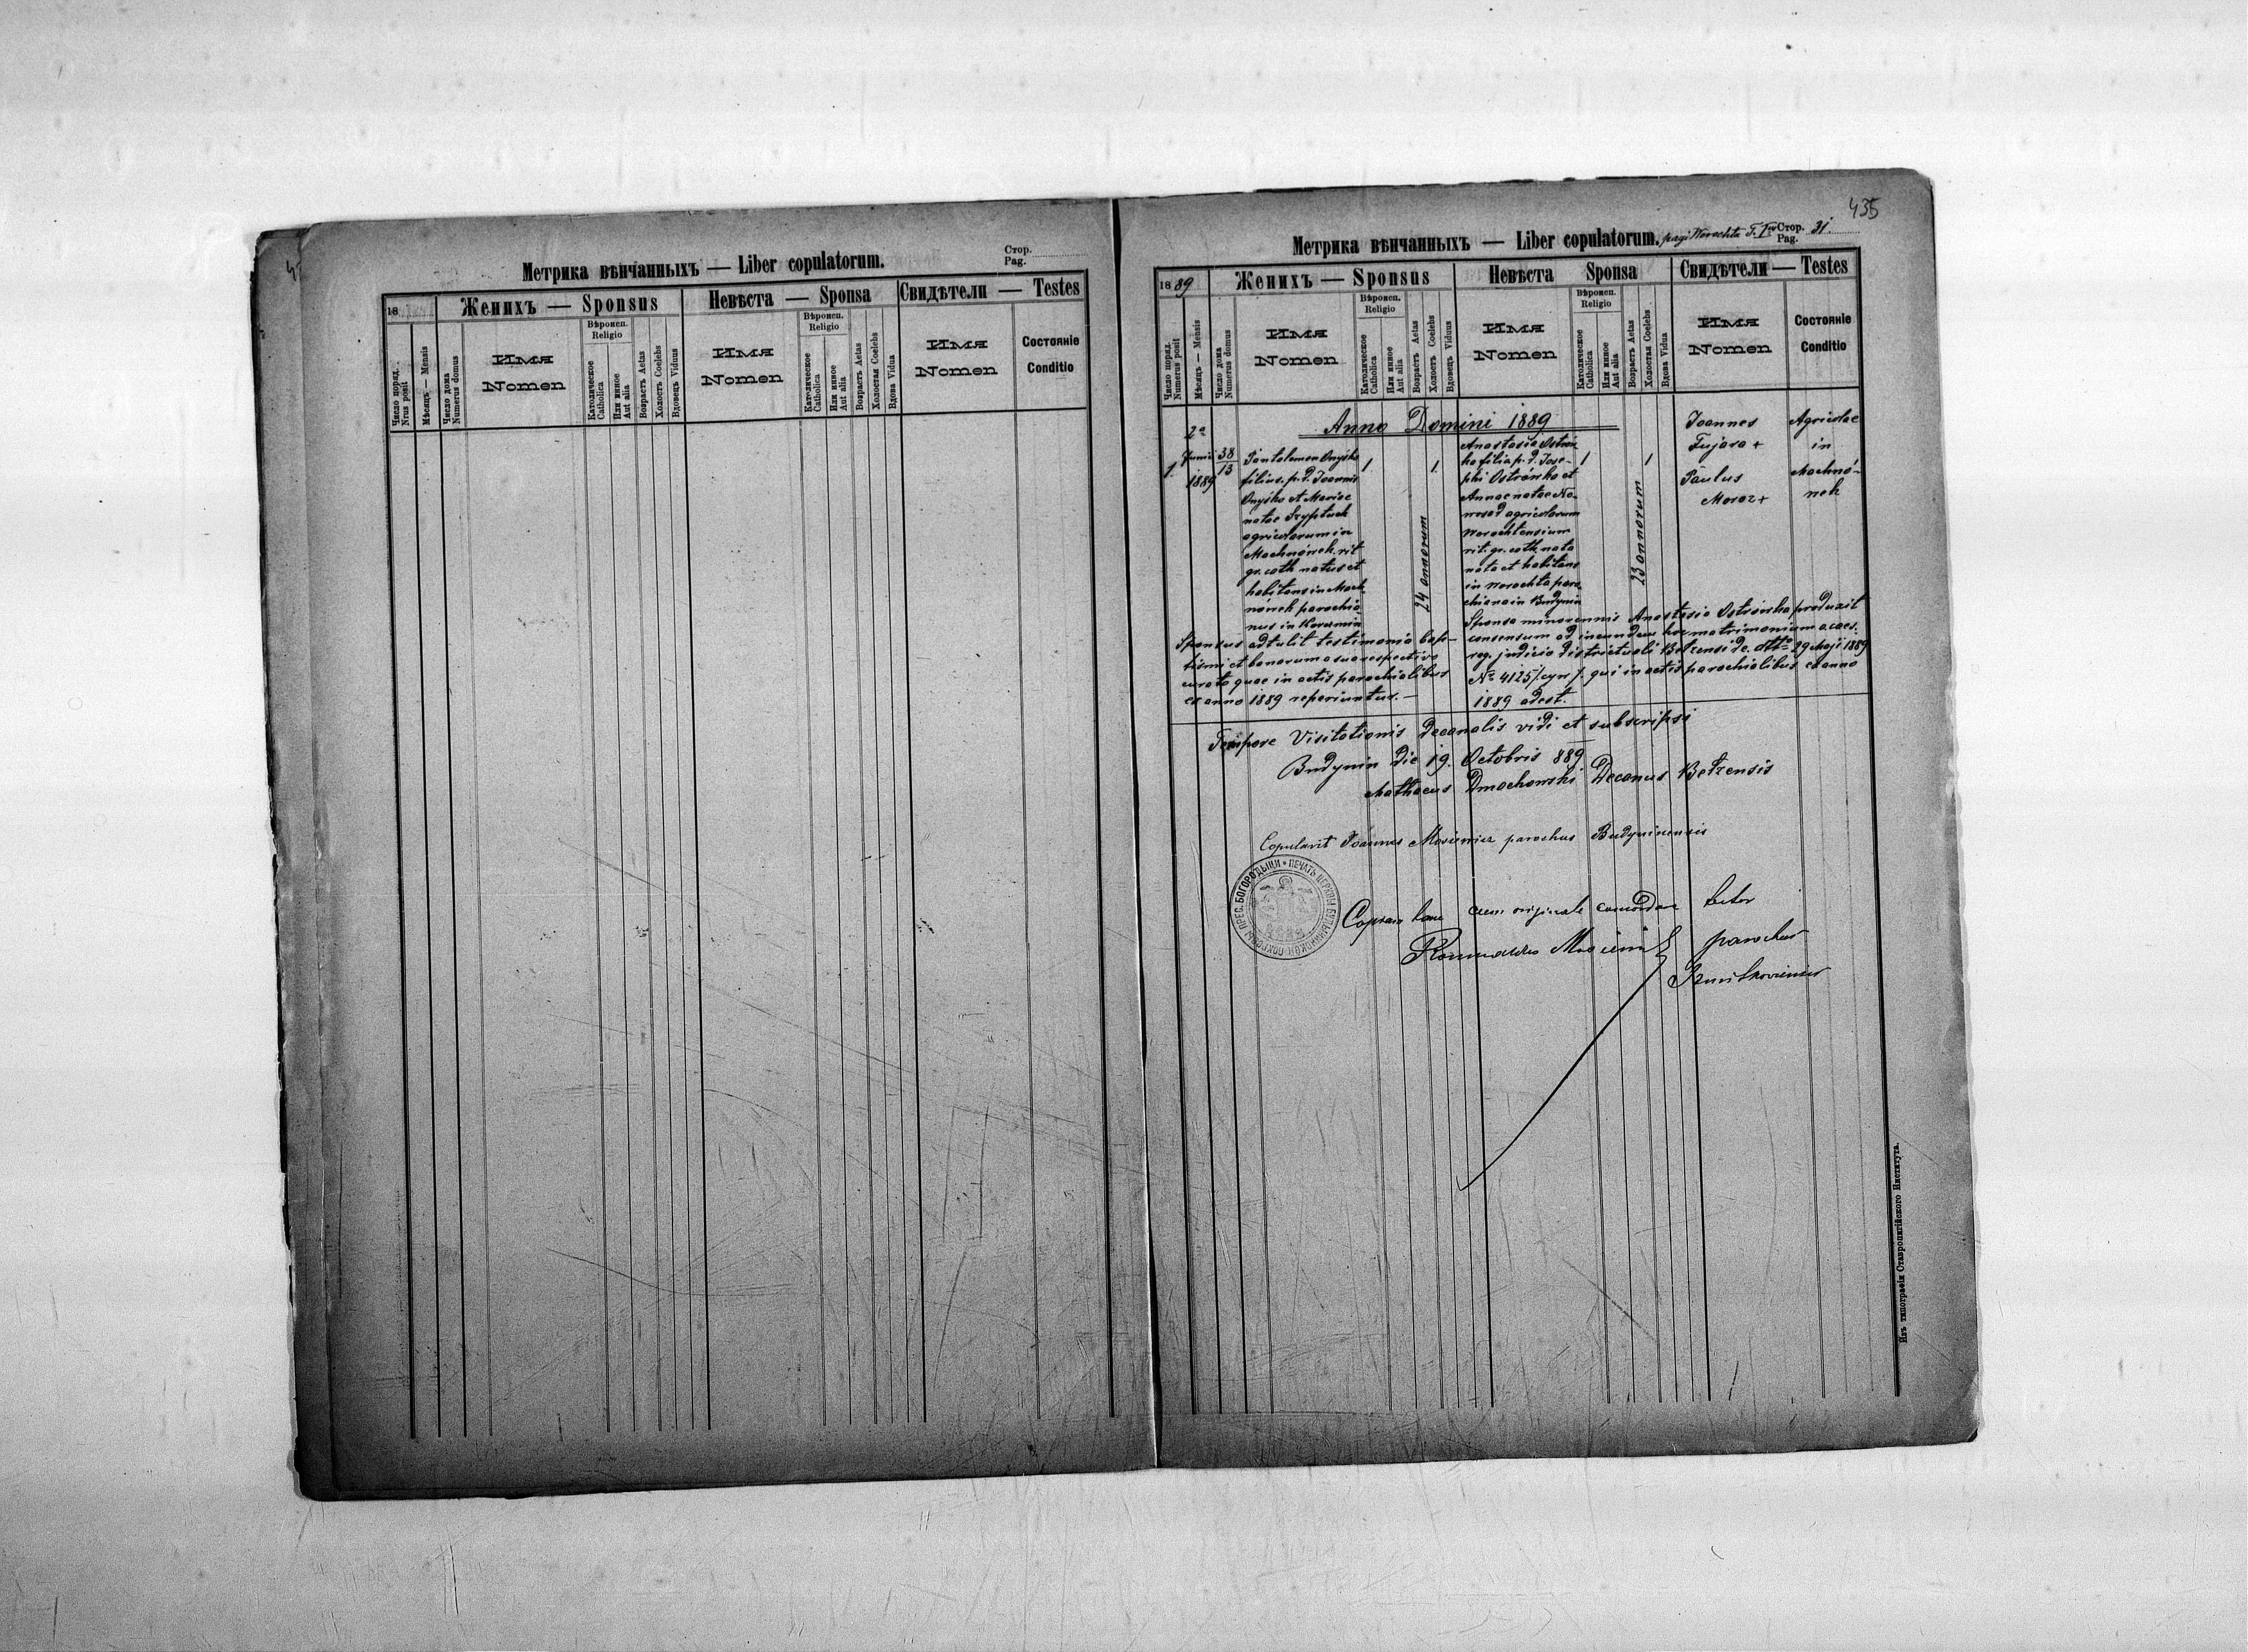 Метрика вѣнчанныхъ — Liber copulatorum.
Стор.
Pag.
18
Женихъ — Sponsus
Невѣста — Sponsa
Свидѣтели — Testes
Число поряд.
Nrus posit
Мѣсяцъ — Mensis
Число дома
Numerus domus
Имя
Nomen
Вѣроисп.
Religio
Католическое
Catholica
Или инное
Aut alia
Возрастъ Aetas
Холостъ Coelebs
Вдовецъ Viduus
Имя
Nomen
Вѣроисп.
Religio
Католическое
Catholica
Или инное
Aut alia
Возрастъ Aetas
Холостая Coelebs
Вдова Vidua
Имя
Nomen
Состоянiе
Conditio
435
Метрика вѣнчанныхъ — Liber copulatorum. pagi Worochta T. I
Стор.
Pag. 31.
1889
Женихъ — Sponsus
Невѣста Sponsa
Свидѣтели — Testes
Число поряд.
Numerus posit
Мѣсяцъ — Mensis
Число дома
Numerus domus
Имя
Nomen
Вѣроисп.
Religio
Католическое
Catholica
Или инное
Aut alia
Возрастъ Aetas
Холостъ Coelebs
Вдовецъ Viduus
Имя
Nomen
Вѣроисп.
Religio
Католическое
Catholica
Или инное
Aut alia
Возрастъ Aetas
Холостая Coelebs
Вдова Vidua
Имя
Nomen
Состоянiе
Conditio
Anno Domini 1889
1.
2a
Junii
1889
38
13
Pantalemon Onyśko
filius p. d. Joannis
Onyśko et Mariae
natae Szyptuch
agricolarum in
Machnówek rit
gr. cath natus et
habitans in Mach
nówek parochia
nus in Korczmin
1
24 annorum
1
Anastasia Ostrów
ka filia p. d. Jose-
phi Ostrówka et
Annae natae Na
wosad agricolarum
Worochtensium
rit. gr. cath. nata
nata et habitans
in Worochta paro
chiana in Budynin
1
23 annorum
1
Joannes
Fujara +
Paulus
Moroz +
Agricolae
in
Machnó-
wek
Sponsus adtulit testimonia bap-
tismi et bannorum a suo respectivo
curato quae in actis parochialibus
ex anno 1889 reperiuntur. —
Sponsa minorennis Anastasia Ostrówka produxit
consensum ad ineundum hoc matrimonium a caes.
reg. judicio districtuali Bełzensi de dtto 29 Maji 1889
No 4125/cyw/. qui in actis parochialibus ex anno
1889 adest.
Tempore Visitationis Decanalis vidi et subscripsi
Budynin die 19. Octobris 889
Mathaeus Dmochowski Decanus Bełzensis
Copulavit Joannes Mosiewicz parochus Budyninensis
ПЕЧАТЬ ЦЕРКВИ БУДЫНИНСКОЙ ПОКРОВЫ ПРЕС. БОГОРОДЫЦИ
Copiam hanc cum originale concordare testor
parochus
Изъ типографiи Ставропигiйского Института.